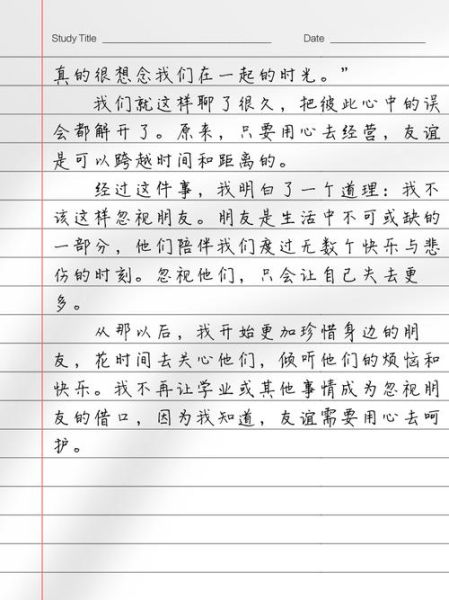 Study Title
Date
真的很想念我们在一起的时光。”
我们就这样聊了很久，把彼此心中的误
会都解开了。原来，只要用心去经营，友谊
是可以跨越时间和距离的。
经过这件事，我明白了一个道理：我不
该这样忽视朋友。朋友是生活中不可或缺的
一部分，他们陪伴我们度过无数个快乐与悲
伤的时刻。忽视他们，只会让自己失去更
多。
从那以后，我开始更加珍惜身边的朋
友，花时间去关心他们，倾听他们的烦恼和
快乐。我不再让学业或其他事情成为忽视朋
友的借口，因为我知道，友谊需要用心去呵
护。